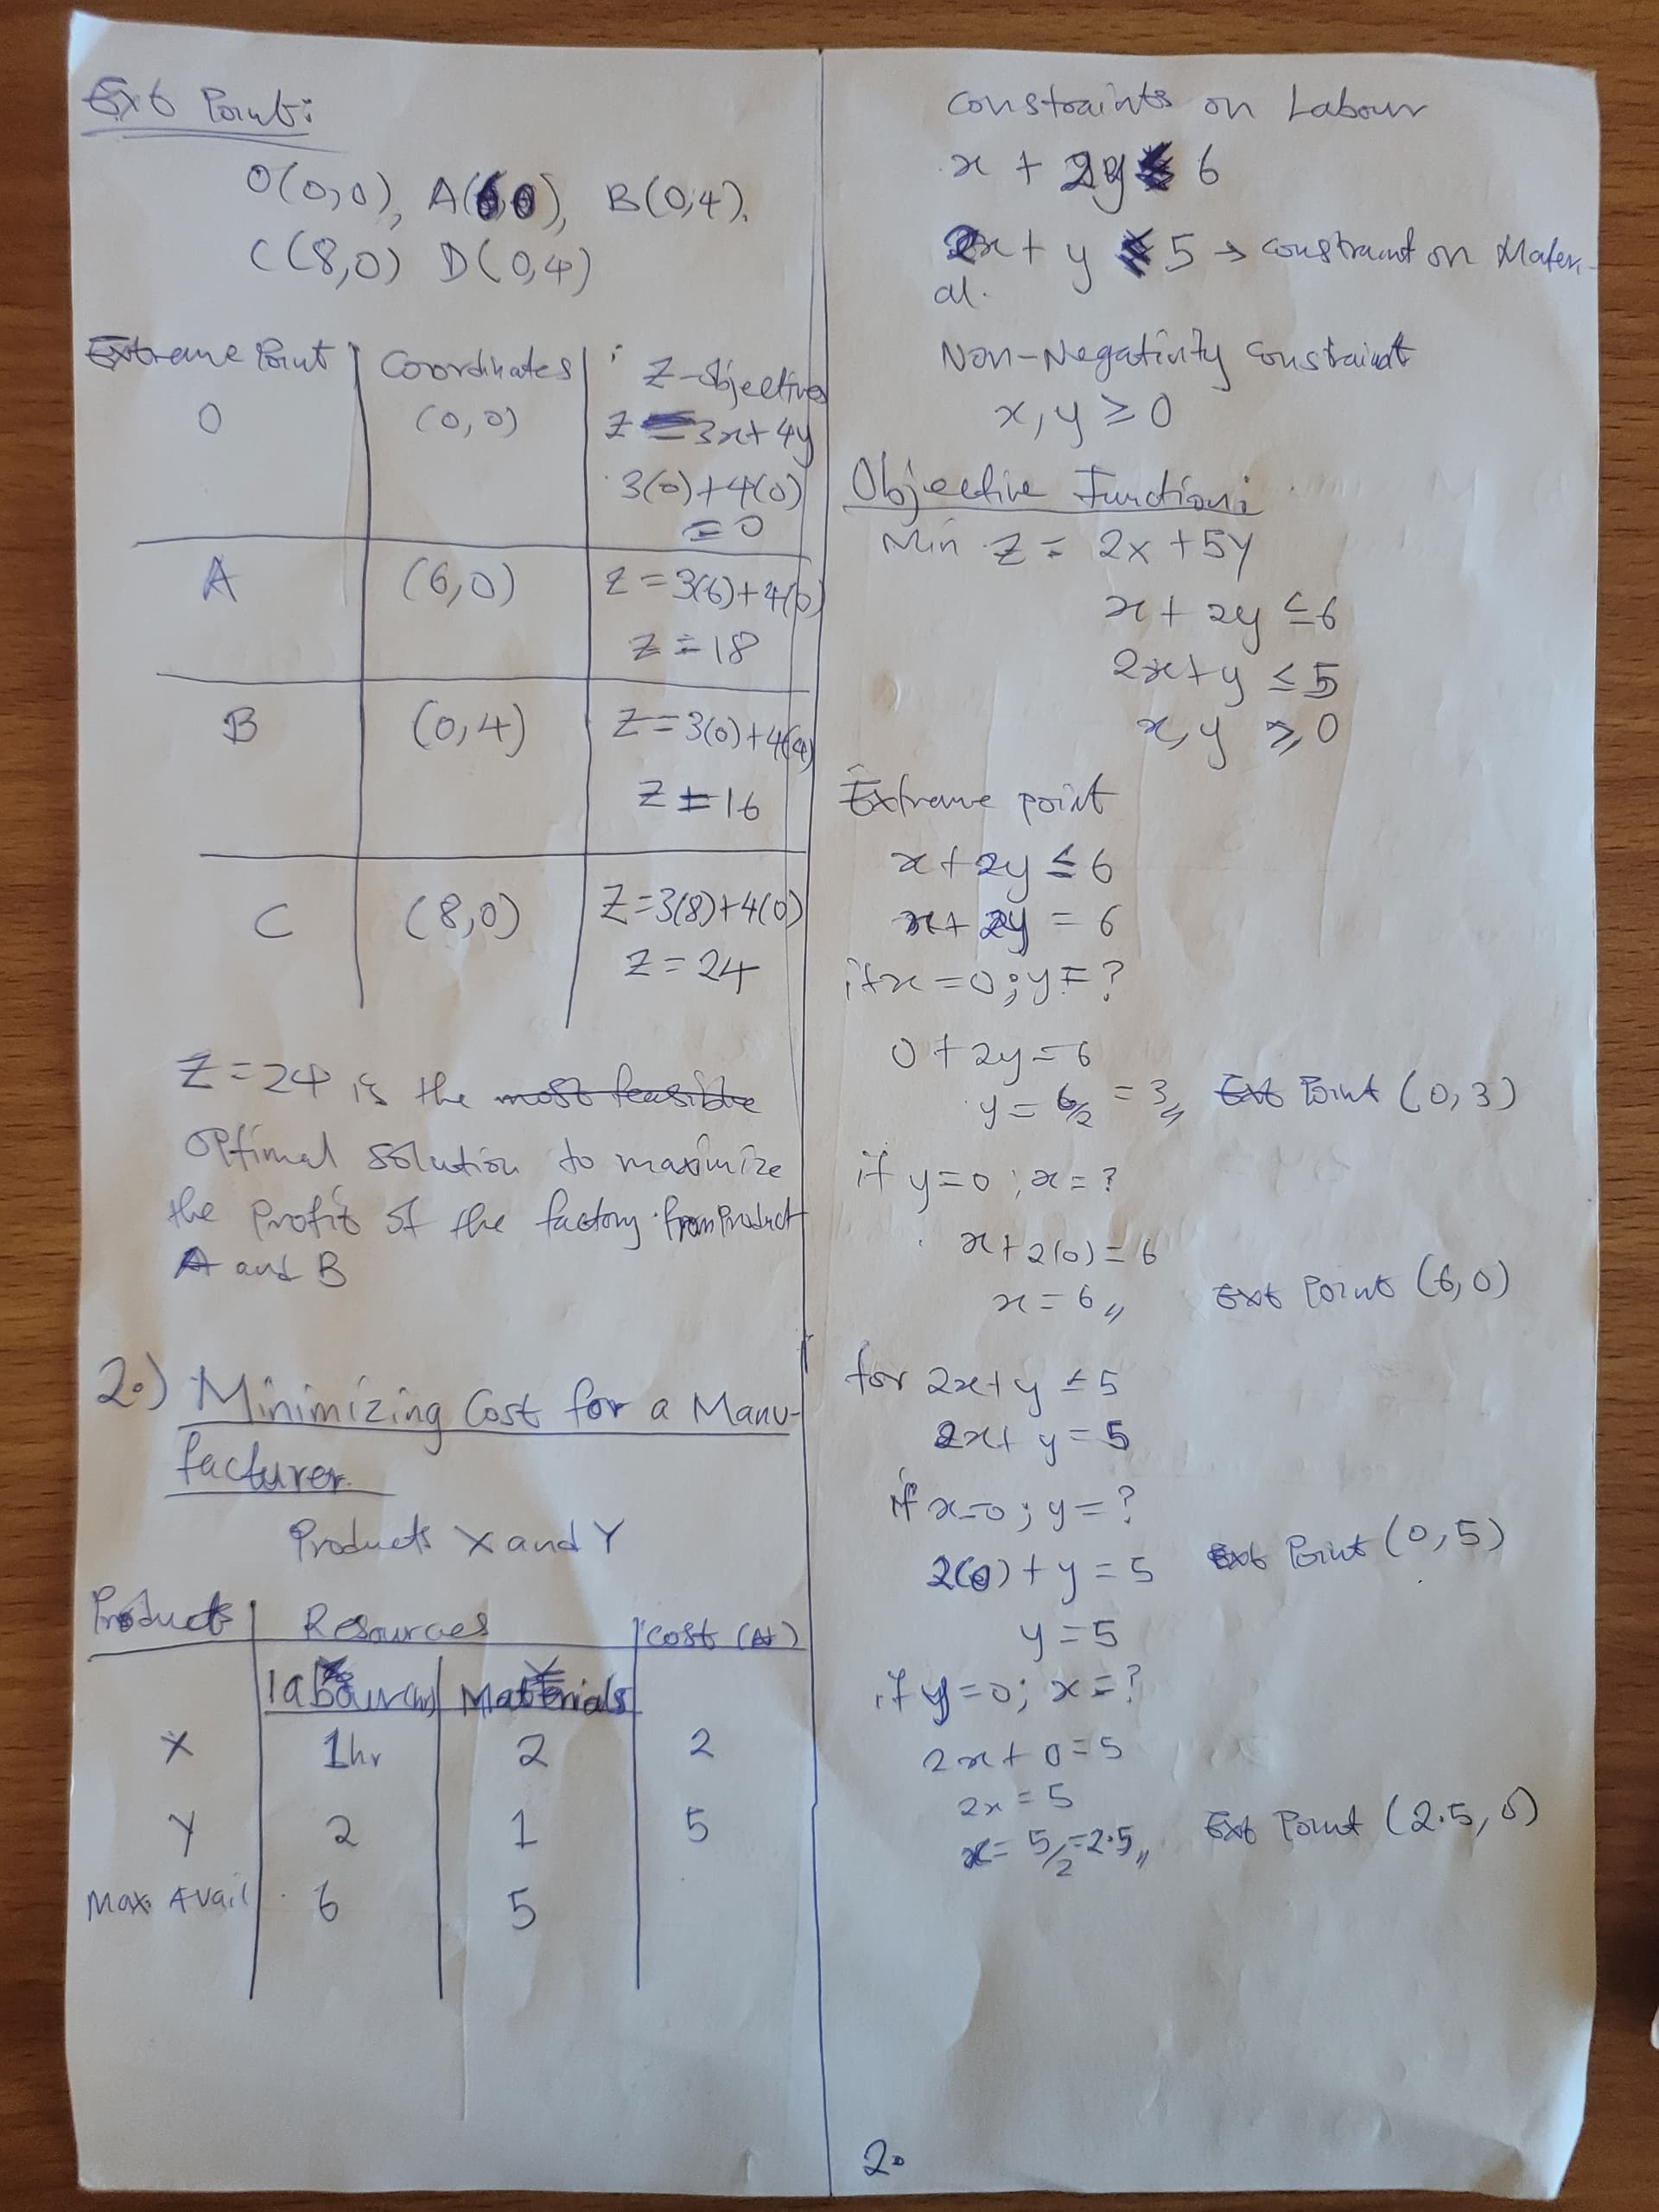 Ext Point:
O(0,0), A(6,0), B(0,4).
C(8,0) D(0,4)
Extreme Point | Coordinates | Z-Objective
O (0,0) Z = 3x+4y
3(0)+4(0)
= 0
A (6,0) Z = 3(6)+4(0)
Z = 18
B (0,4) Z = 3(0)+4(4)
Z = 16
C (8,0) Z = 3(8)+4(0)
Z = 24
Z = 24 is the most feasible
optimal solution to maximize
the profit of the factory from Product
A and B
2.) Minimizing Cost for a Manu-
facturer.
Products X and Y
Products | Resources | Cost (₦)
labour(hr) | Materials
X 1hr 2 2
Y 2 1 5
Max. Avail 6 5
Constraints on Labour
x + 2y ≤ 6
2x + y ≤ 5 → constraint on Materi-
al.
Non-Negativity Constraint
x, y ≥ 0
Objective Function:
Min Z = 2x + 5y
x + 2y ≤ 6
2x + y ≤ 5
x, y ≥ 0
Extreme point
x + 2y ≤ 6
x + 2y = 6
if x = 0; y = ?
0 + 2y = 6
y = 6/2 = 3,, Ext Point (0, 3)
if y = 0; x = ?
x + 2(0) = 6
x = 6,, Ext Point (6, 0)
for 2x + y ≤ 5
2x + y = 5
if x = 0; y = ?
2(0) + y = 5 Ext Point (0, 5)
y = 5
if y = 0; x = ?
2x + 0 = 5
2x = 5
x = 5/2 = 2.5,, Ext Point (2.5, 0)
2.